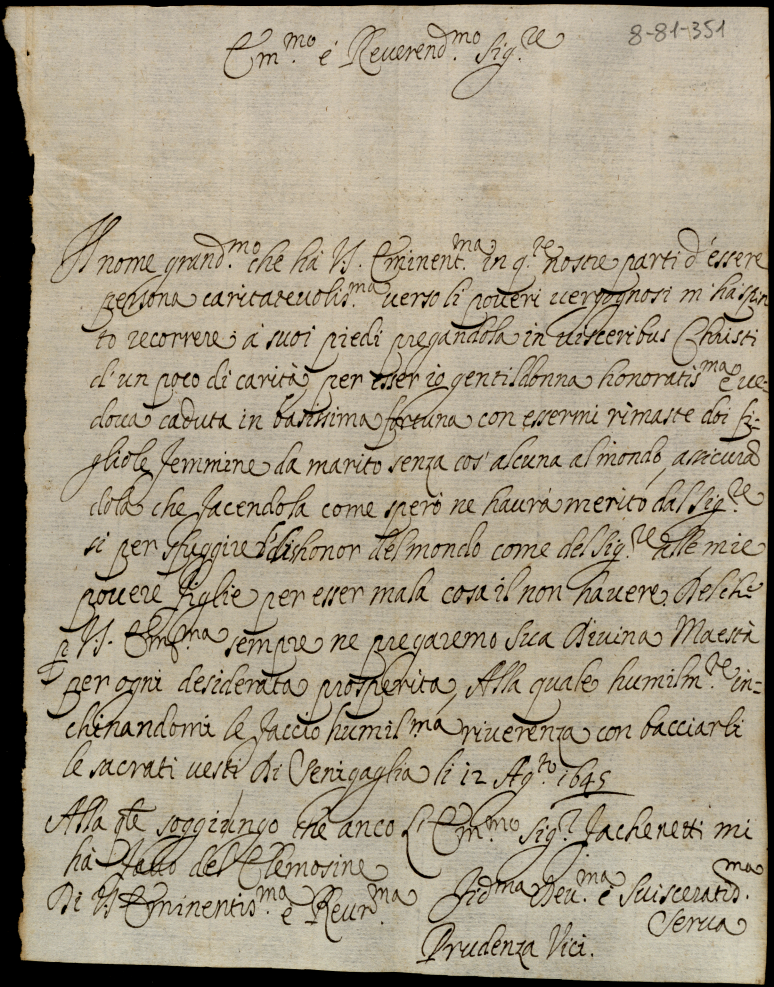 8-81-351
Em.mo é Reuerend.mo Sig.re
Il nome grand.mo che hà VS. Eminent.ma in q.te nostre parti d'essere
persona caritateuolis.ma uerso li poueri uergognosi m'hà spin
to recorrere à suoi piedi pregandola in uisceribus Christi
d'un poco di carità per esser io gentildonna honoratis.ma e ue-
doua caduta in basissima fortuna con essermi rimaste doi fi-
gliole femmine da marito senza cos'alcuna al mondo, assicurā
dola che facendola come spero ne haurà merito dal Sig.re
si per sfuggire il dishonor del mondo come del Sig.re alle mie
pouere figlie per esser mala cosa il non hauere. Delche
p VS. Em.ma sempre ne pregaremo Sua Diuina Maestà
per ogni desiderata prosperità, Alla quale humilm.te in-
chinandomi le faccio humil.ma riuerenza con bacciarli
le sacrati uesti Di Senigaglia li 12 Ag.to 1645
Alla q̄le soggiungo che anco l'Em.mo Sig.r Facheretti mi
hà fatto del Elemosine
Di VS Eminentis.ma e Reur.ma
Fid.ma Deu.ma e Suisceratis.ma
Serua
Prudenza Vici.